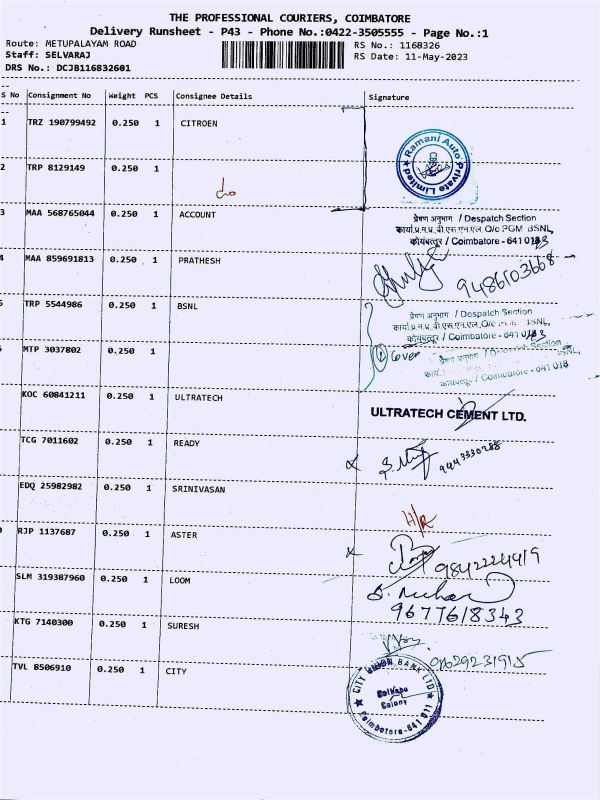 THE PROFESSIONAL COURIERS, COIMBATORE
Delivery Runsheet - P43 - Phone No.:0422-3505555 - Page No.:1
Route: METUPALAYAM ROAD
RS No.: 1168326
Staff: SELVARAJ
RS Date: 11-May-2023
DRS No.: DCJB116832601
S No Consignment No Weight PCS Consignee Details Signature
1 TRZ 190799492 0.250 1 CITROEN
Ramani Auto Private Limited
2 TRP 8129149 0.250 1
3 MAA 568765044 0.250 1 ACCOUNT
प्रेषण अनुभाग / Despatch Section
कार्या.प्र.म.प्र. बी एस.एन.एल. O/o PGM BSNL,
कोयंबत्तूर / Coimbatore - 641 0
4 MAA 859691813 0.250 1 PRATHESH
9486103668
TRP 5544986 0.250 1 BSNL
प्रेषण अनुभाग / Despatch Section
कार्या.प्र.म.प्र. बी एस.एन.एल. O/o BSNL,
कोयंबत्तूर / Coimbatore - 641
MTP 3037802 0.250 1
① Cover
Despatch Section
BSNL,
/ Coimbatore - 641 018
KOC 60841211 0.250 1 ULTRATECH
ULTRATECH CEMENT LTD.
TCG 7011602 0.250 1 READY
9443330288
EDQ 25982982 0.250 1 SRINIVASAN
H/R
RJP 1137687 0.250 1 ASTER
9842224419
SLM 319387960 0.250 1 LOOM
9677618343
KTG 7140300 0.250 1 SURESH
9629231915
TVL 8506910 0.250 1 CITY
CITY UNION BANK LTD
Saibaba
Colony
Coimbatore-641 011